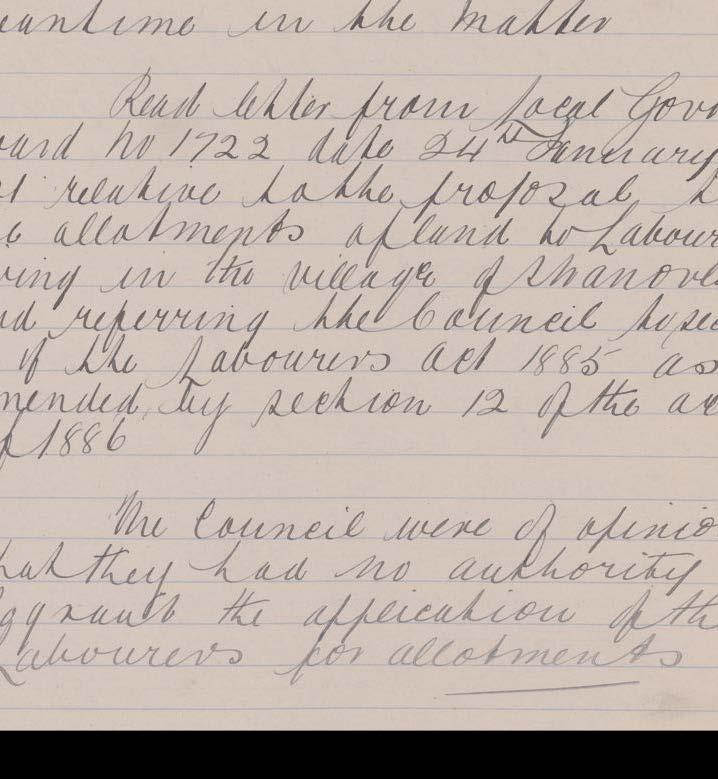 eantime in the matter
Read letter from Local Gover
oard No 1722 date 24th January
relative to the proposal t
allotments of land to Labour
ving in the village of Shanovo
nd referring the Council to sec
of the Labourers Act 1885 as
mended by section 12 of the ac
of 1886
The Council were of opinio
hat they had no authority
the application of th
Labourers for allotments